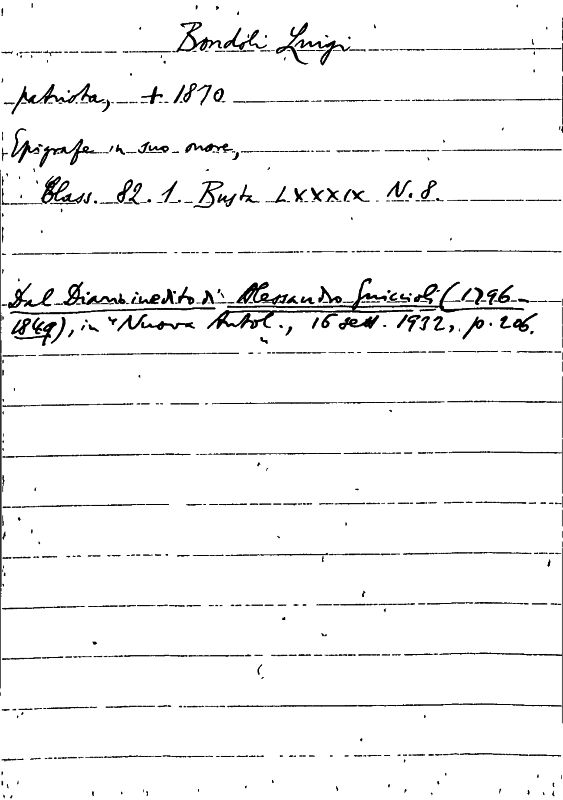 Bondoli Luigi
patriota, + 1870
Epigrafe in suo onore,
Class. 82.1. Busta LXXXIX N.8.
Dal Diario inedito di Alessandro Guiccioli (1796-
1849), in "Nuova Antol., 16 sett. 1932, p. 206.